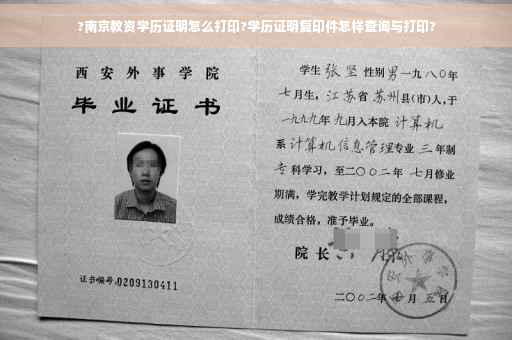 ?南京教资学历证明怎么打印?学历证明复印件怎样查询与打印?
西安外事学院
毕业证书
证书编号:0209130411
学生 张坚 性别 男 一九八〇年
七月生，江苏省 苏州 县(市)人,于
一九九九年 九月入本院 计算机
系 计算机信息管理 专业 三 年制
专科学习，至二〇〇二年 七月修业
期满，学完教学计划规定的全部课程，
成绩合格，准予毕业。
院长
二〇〇二年 月 五 日